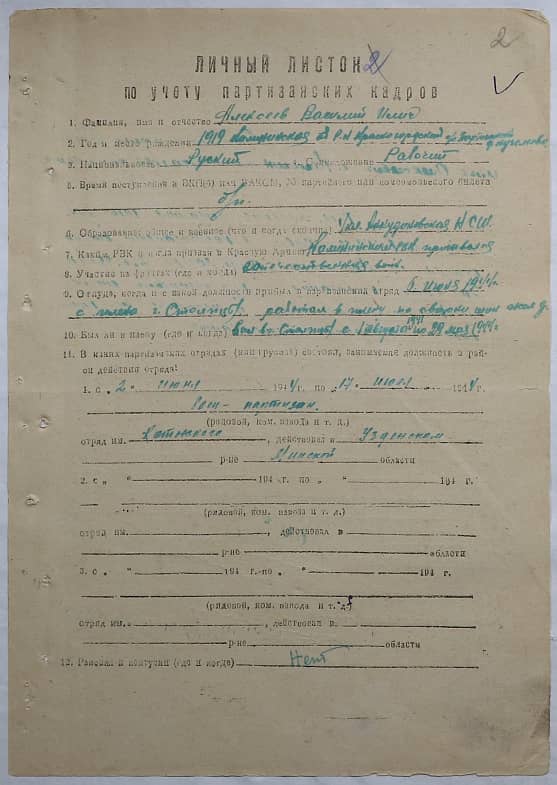 2
ЛИЧНЫЙ ЛИСТОК 2
по учету партизанских кадров
1. Фамилия, имя и отчество Алексеев Василий Илич
2. Год и место рождения 1919 Калининская обл. р-н Красногородский
3. Национальность Руский Рабочий
5. Время поступления в ВКП(б) или ВЛКСМ, № партийного или комсомольского билета
б/п.
6. Образование общее и военное (что и когда окончил) НСШ.
7. Каким РВК и когда призван в Красную Армию
8. Участие на фронтах (где и когда) отечественная война.
9. Откуда, когда и с какой должности прибыл в партизанский отряд 6 июня 1944 г.
с плена г. Столпцы. работал в плену по
10. Был ли в плену (где и когда) был в г. Столпцы с 1 августа 1941 по 29 мая 1944 г.
11. В каких партизанских отрядах (или группах) состоял, занимаемая должность и рай-
он действий отряда:
1. с „2“ июня 1944 г. по „17“ июля 1944 г.
партизан.
(рядовой, ком. взвода и т. д.)
отряд им. , действовал в Узденском
р-не Минской области
2. с „ “ 194 г. по „ “ 194 г.
(рядовой, ком. взвода и т. д.)
отряд им. , действовал в
р-не области
3. с „ “ 194 г. по „ “ 194 г.
(рядовой, ком. взвода и т. д.)
отряд им. , действовал в
р-не области
12. Ранения и контузии (где и когда) Нет